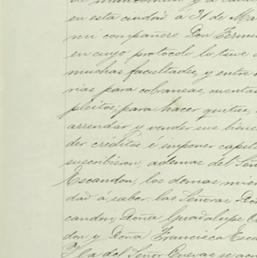 de mancomun y a cada
en esta ciudad á 31 de Ma
mi compañero Don Fermin
en cuyo protocolo la tuve
muchas facultades, y entre
rias para cobranzas, 
pleitos; para hacer quitas,
arrendar y vender sus biene
der créditos é imponer capit
suscribieron, ademas del Señ
Escandon, los demas 
dad á saber: las Señoras Do
candon, Doña Guadalupe Es
don y Doña Francisca Esca
del Señor Cuevas se